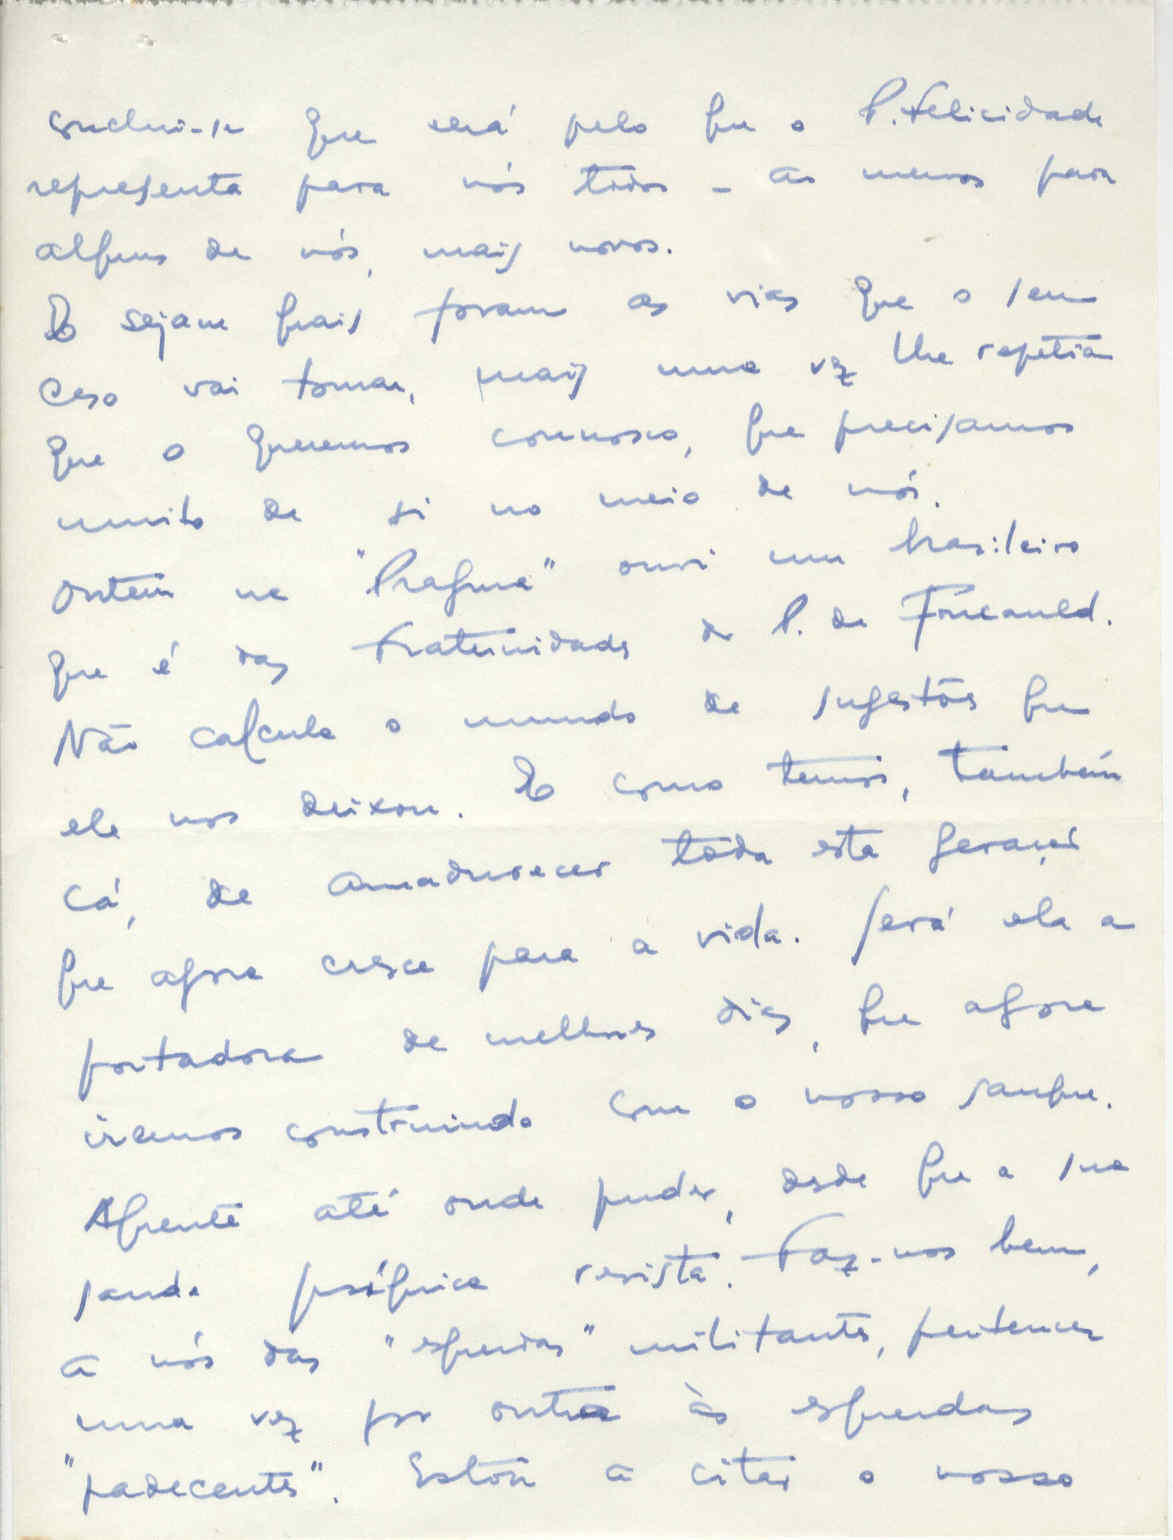 conclui-se que será pelo que o P. Felicidade
representa para nós todos - ao menos para
alguns de nós, mais novos.
E sejam quais foram as vias que o seu
caso vai tomar, mais uma vez lhe repetia
que o queremos connosco, que precisamos
muito de si no meio de nós.
Ontem na "Pragma" ouvi um brasileiro
que é das Fraternidades do P. de Foucauld.
Não calcula o mundo de sugestões que
ele nos deixou. E como temos, também
cá, de amadurecer tôda esta geração
que agora cresce para a vida. Será ela a
portadora de melhores dias, que agora
iremos construindo com o nosso sangue.
Aguente até onde puder, desde que a sua
saude psíquica resista. Faz-nos bem,
a nós das "esquerdas" militantes, pertencer
uma vez por outra às esquerdas
"padecentes". Estou a citar o nosso